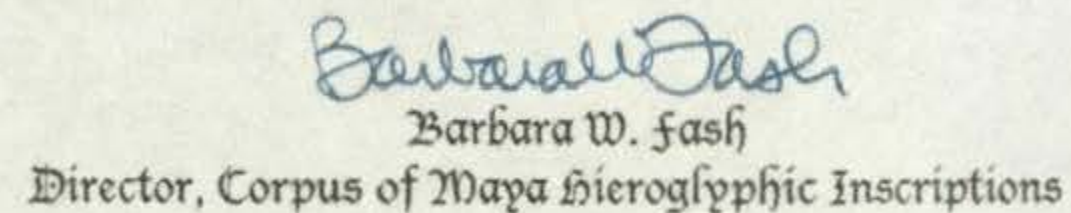 Barbara W. Fash
Barbara W. Fash
Director, Corpus of Maya Hieroglyphic Inscriptions